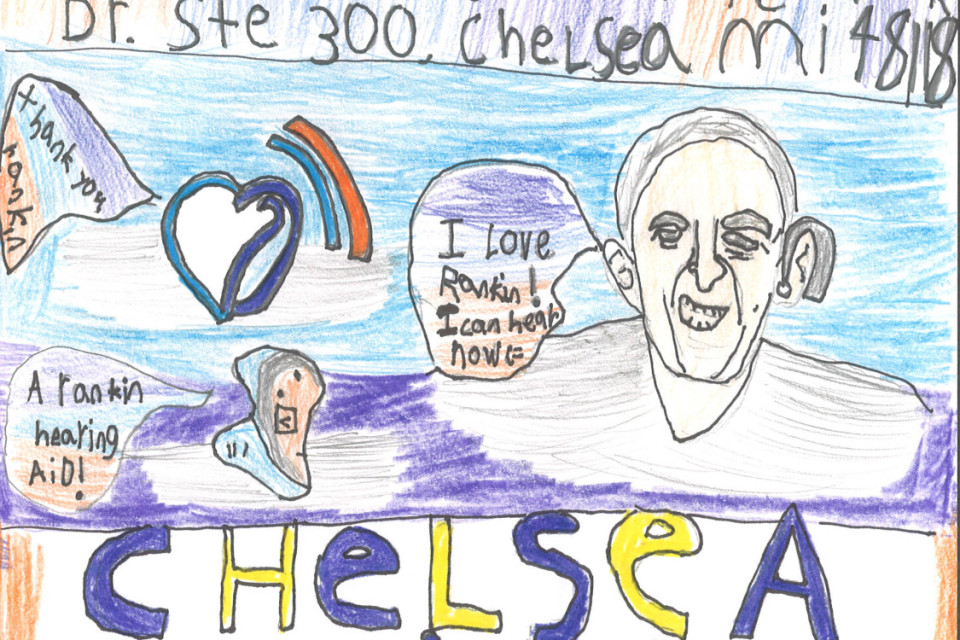 Dr. Ste 300. Chelsea mi 48118
Thank you
rankin
I Love
Rankin!
I can hear
now
A rankin
hearing
AiD!
CHeLSeA